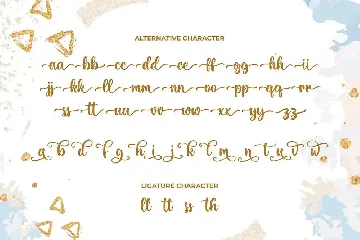 ALTERNATIVE CHARACTER
aa bb cc dd ee ff gg hh ii
jj kk ll mm nn oo pp qq rr
ss tt uu vv ww xx yy zz
a b d f g h i j k l m n t u v w
LIGATURE CHARACTER
ll tt ss th